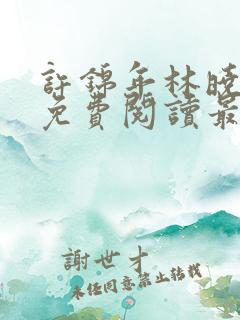 許錦年林曉
免費閱讀最
謝世才
未經同意禁止轉載